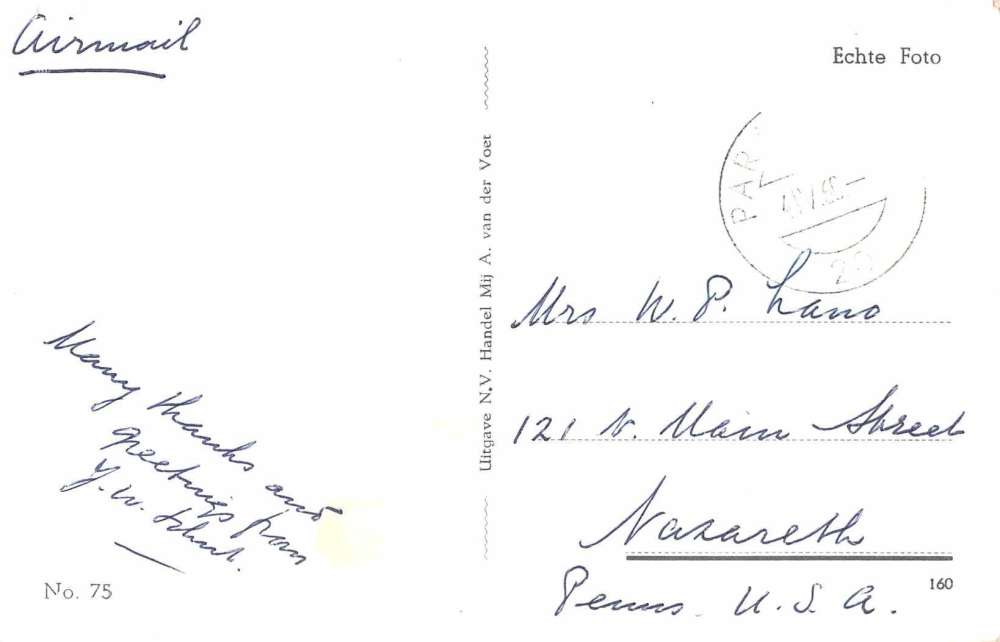 Airmail
Echte Foto
PAR
20
Mrs W. P. Lano
121 N. Main Street
Nazareth
Penns. U.S.A.
Many thanks and
greetings from
Y. W. Schut.
Uitgave N.V. Handel Mij A. van der Voet
No. 75
160